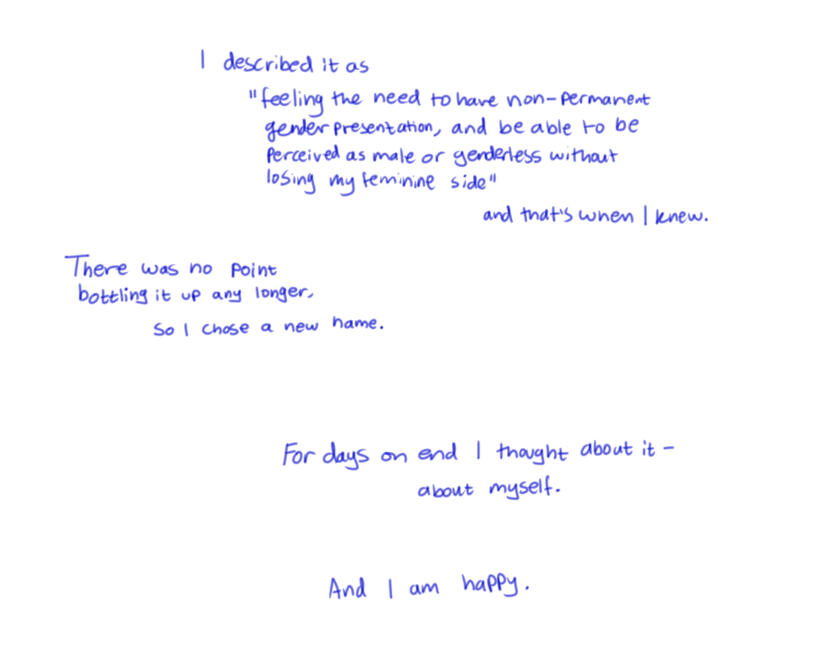 I described it as
"feeling the need to have non-permanent
gender presentation, and be able to be
perceived as male or genderless without
losing my feminine side"
and that's when I knew.
There was no point
bottling it up any longer,
So I chose a new name.
For days on end I thought about it -
about myself.
And I am happy.